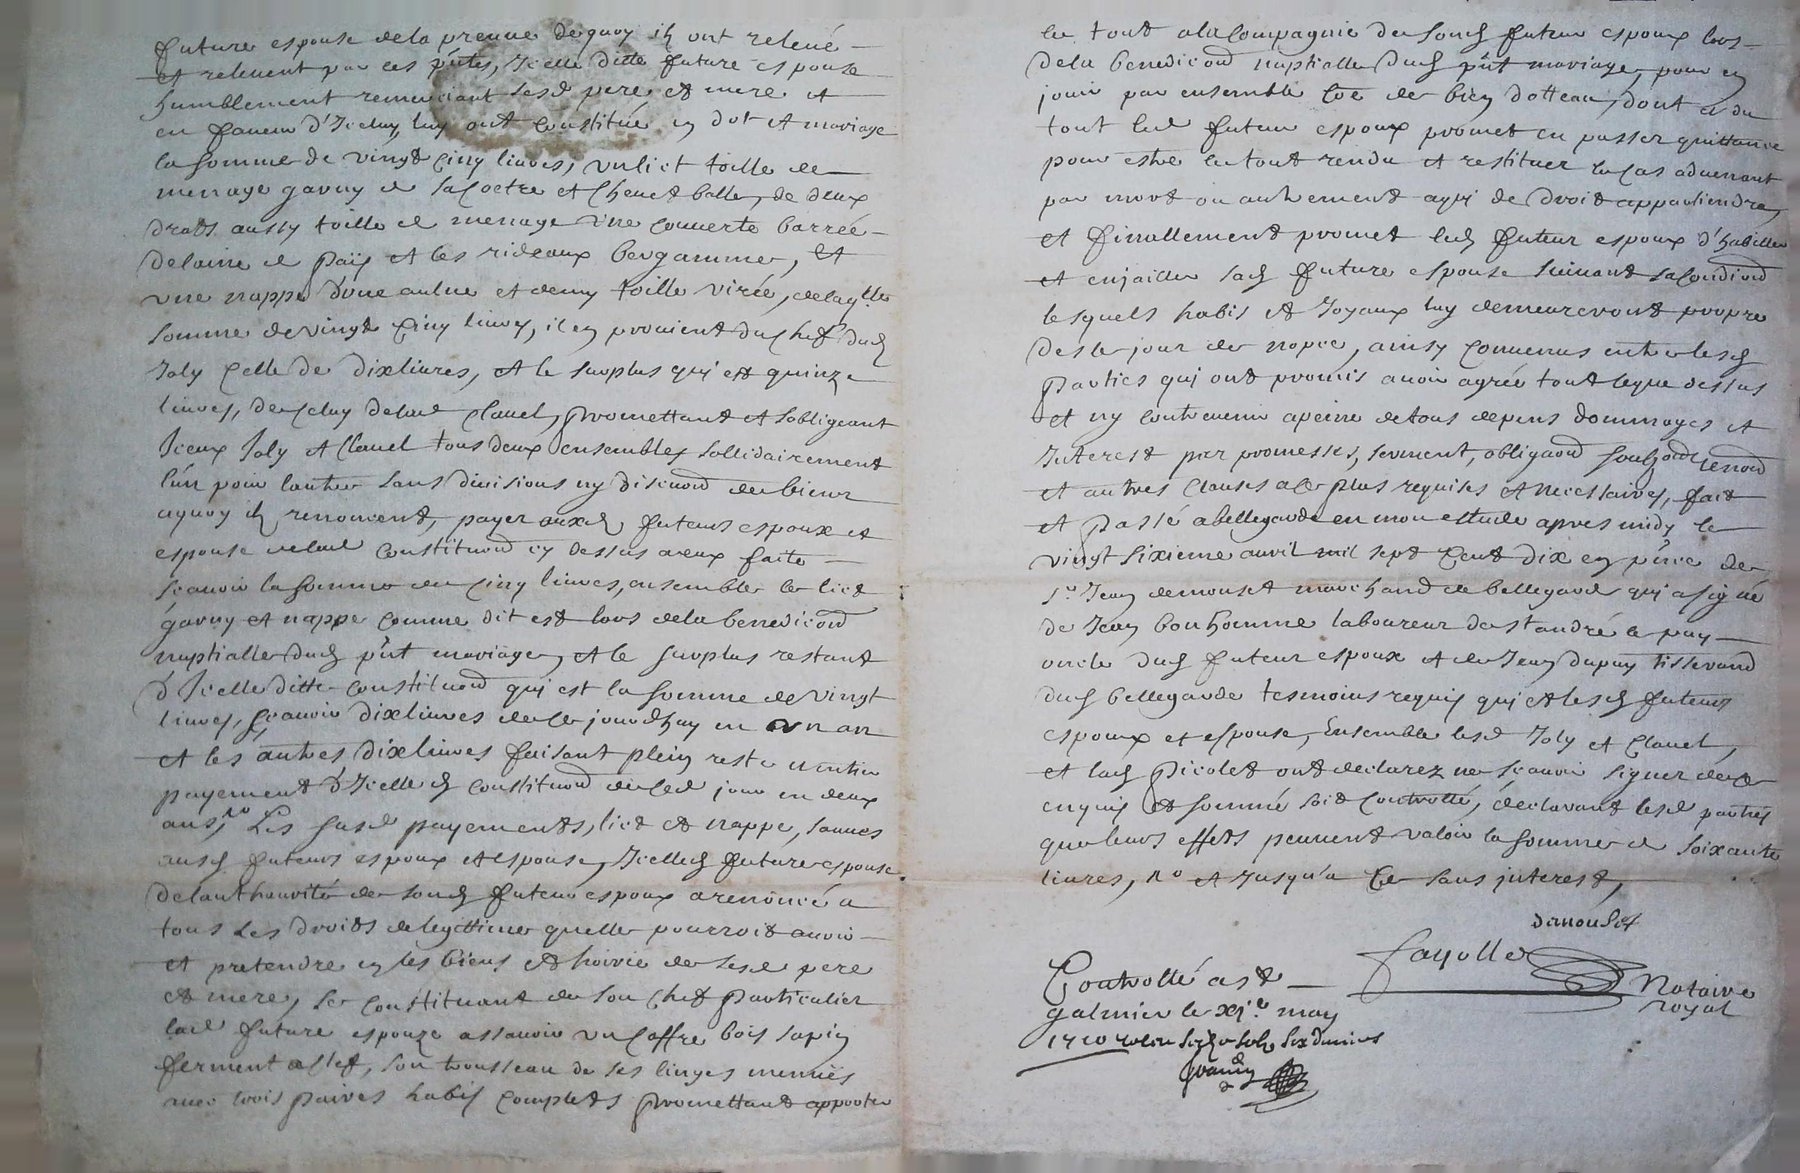 future espouse dela preuve de quoy ilz ont relevé
et relevent par ces p̃ntes, Icelle ditte future espouse
humblement remerciant lesd pere et mere et
en faveur d'Iceluy luy ont constitué en dot et mariage
la somme de vingt cinq livres, un lict toille de
menage garny de sa coetre et chevet balle, de deux
draps aussy toille de menage une couverte barrée
de laine de païs et les rideaux bergamme, et
une nappe d'une aulne et demy toille virée, de laqlle
somme de vingt cinq livres, il en provient du chef dud
Joly celle de dix livres, et le surplus qui est quinze
livres, de celuy de lad Clavel, promettant et s'obligeant
Iceux Joly et Clavel tous deux ensembles sollidairement
l'un pour l'autre sans divisions ny discuõn de biens
a quoy ilz renoncent, payer auxd futeurs espoux et
espouse de lad constituõn cy dessus a eux faite
scavoir la somme de cinq livres, ensemble le lict
garny et nappe comme dit est lors de la benediõn
nuptialle dud p̃nt mariage, et le surplus restant
d'Icelle ditte constituõn qui est la somme de vingt
livres, scavoir dix livres de ce jourdhuy en un an
et les autres dix livres faisant plein reste et entier
payement d'Icelle d constituõn de ced jour en deux
ans, no Les susd payements, lict et nappe, sauves
ausd futeurs espoux et espouse, Icelle d future espouse
de l'authourité de sond futeur espoux a renoncé a
tous les droits de legittime quelle pourroit avoir
et pretendre en les biens et hoirie de sesd pere
et mere, se constituant de son chef particulier
lad future espouze assavoir un coffre bois sapin
ferment a clef, son trousseau de ses linges menuës
avec trois paires habis complets promettant apporter
le tout a la compagnie de sond futeur espoux lors
dela benediõn nuptialle dud p̃nt mariage, pour en
jouir par ensemble co͂e de bien dotteau, dont et du
tout led futeur espoux promet en passer quittance
pour estre le tout rendu et restituer le cas advenant
par mort ou autrement a qui de droit appartiendra,
et finallement promet led futeur espoux d'habiller
et enjailler sad future espouse suivant sa condiõn
lesquels habis et Joyaux luy demeureront propre
des le jour de nopce, ainsy convenus entre lesd
parties qui ont promis avoir agrée tout ce que dessus
et ny contrevenir a peine de tous depens dommages et
Interest par promesses, serment, obligaõn soubzõn renõn
et autres clauses a ce plus requises et necessaires, fait
et passé a bellegarde en mon estude apres midy le
vingt sixieme avril mil sept cent dix en p̃nce de
Sr Jean demouset marchand de bellegarde qui a signé
de Jean bonhomme laboureur de st andré le puy
oncle dud futeur espoux et de Jean dupuy tisserand
dud bellegarde tesmoins requis qui et lesd futeurs
espoux et espouse, Ensemble lesd Joly et Clavel,
et lad Picolet ont declarez ne scavoir signer de ce
enquis et sommé soit controllé, declarant lesd parties
que leurs effets peuvent valoir la somme de soixante
livres, no et Jusqu'a ce sans interest,
demouset
fayolle
Notaire
royal
Controllé a st
galmier le xj.e may
1710